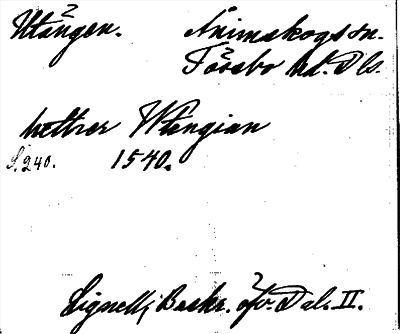 Utången. Ånimskogs sn.
Tössbo hd. Dls.
hettrer Wtengian
S. 240. 1540.
Lignell, Beskr. öfv. Dal. II.